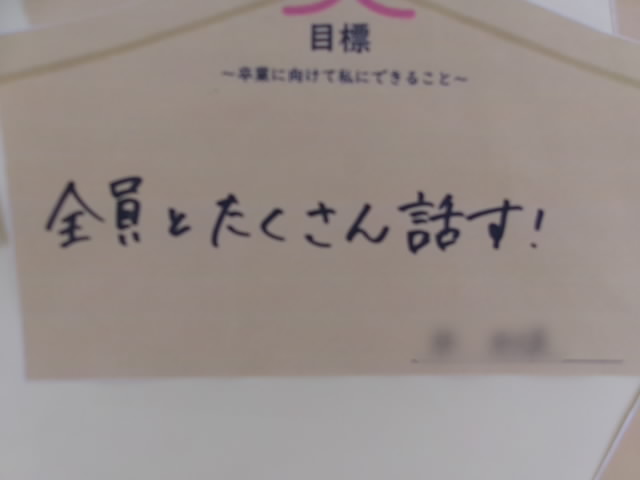 目標
～卒業に向けて私にできること～
全員とたくさん話す!